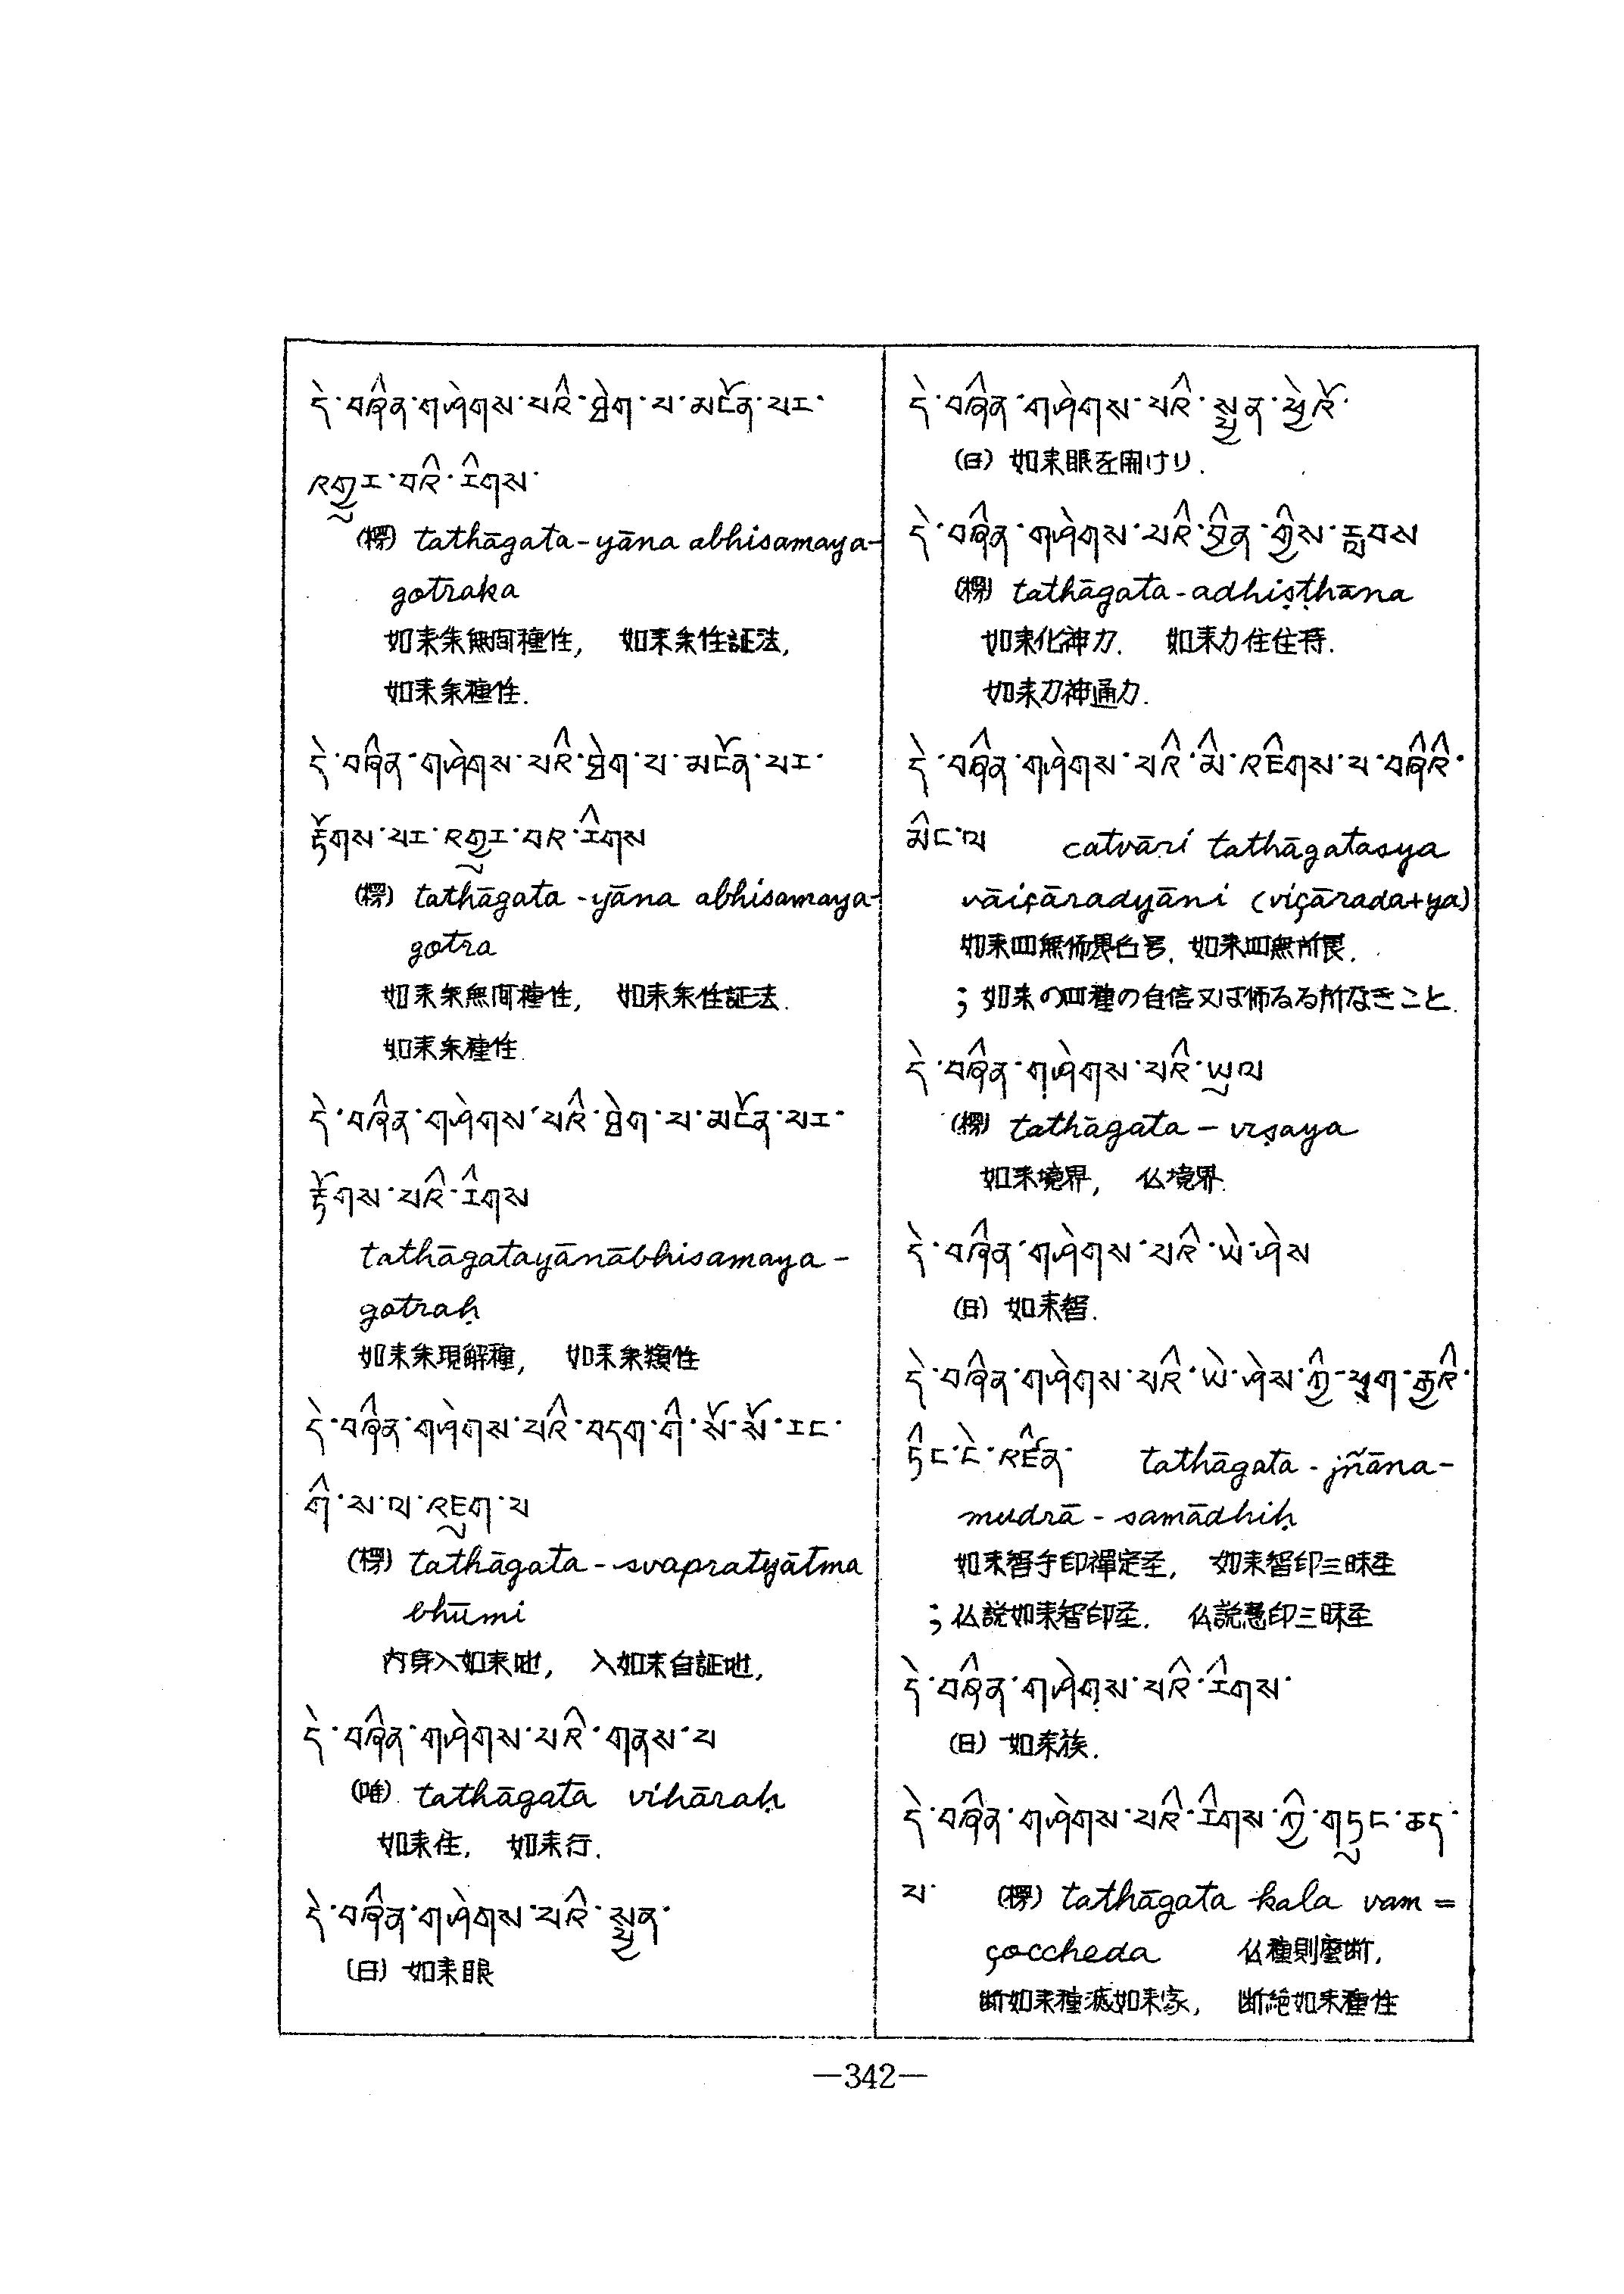 དེ་བཞིན་གཤེགས་པའི་ཐེག་པ་མངོན་པར་
འགྱུར་བའི་རིགས་
(楞) tathāgata-yāna abhisamaya-
gotraka
如来乗無間種性, 如来乗性証法,
如来乗種性.
དེ་བཞིན་གཤེགས་པའི་ཐེག་པ་མངོན་པར་
རྟོགས་པར་འགྱུར་བར་རིགས
(楞) tathāgata-yāna abhisamaya-
gotra
如来乗無間種性, 如来乗性証法.
如来乗種性.
དེ་བཞིན་གཤེགས་པའི་ཐེག་པ་མངོན་པར་
རྟོགས་པའི་རིགས
tathāgatayānābhisamaya-
gotraḥ
如来乗現解種, 如来乗類性
དེ་བཞིན་གཤེགས་པའི་བདག་གི་སོ་སོ་རང་
གི་ས་ལ་འཇུག་པ
(楞) tathāgata-svapratyātma
bhūmi
内身入如来地, 入如来自証地,
དེ་བཞིན་གཤེགས་པའི་གནས་པ
(唯). tathāgata vihāraḥ
如来住, 如来行.
དེ་བཞིན་གཤེགས་པའི་སྤྱན་
(日) 如来眼
དེ་བཞིན་གཤེགས་པའི་སྤྱན་ཕྱེའོ་
(日) 如来眼を開けり.
དེ་བཞིན་གཤེགས་པའི་བྱིན་གྱིས་རླབས
(楞) tathāgata-adhiṣṭhāna
如来化神力. 如来力住住持.
如来力神通力.
དེ་བཞིན་གཤེགས་པའི་མི་འཇིགས་པ་བཞིའི་
མིང་ལ catvāri tathāgatasya
vāiçāradyāni (viçārada+ya)
如来四無怖畏名号, 如来四無所畏.
; 如来の四種の自信又は怖るる所なきこと.
དེ་བཞིན་གཤེགས་པའི་ཡུལ
(楞) tathāgata-viṣaya
如来境界, 仏境界.
དེ་བཞིན་གཤེགས་པའི་ཡེ་ཤེས
(日) 如来智.
དེ་བཞིན་གཤེགས་པའི་ཡེ་ཤེས་ཀྱི་ཕྱག་རྒྱའི་
ཏིང་ངེ་འཛིན་ tathāgata-jñāna-
mudrā-samādhiḥ
如来智手印禪定圣, 如来智印三昧圣
; 仏説如来智印圣. 仏説慧印三昧圣
དེ་བཞིན་གཤེགས་པའི་རིགས་
(日) 如来族.
དེ་བཞིན་གཤེགས་པའི་རིགས་ཀྱི་གདུང་ཆད་
པ་ (楞) tathāgata kala vam=
çoccheda 仏種則壓断,
断如来種滅如来家, 断絶如来種性
—342—